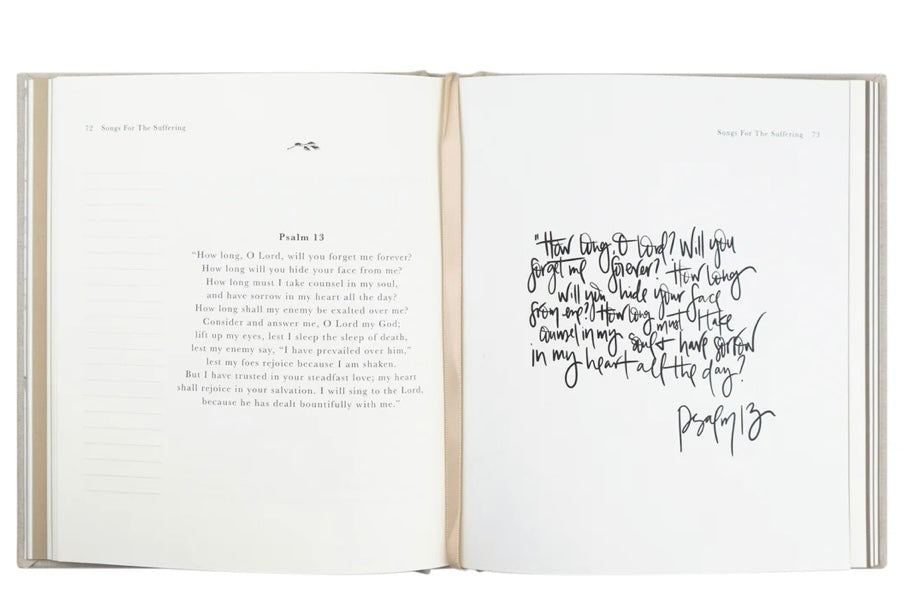 72 Songs For The Suffering
Psalm 13
“How long, O Lord, will you forget me forever?
How long will you hide your face from me?
How long must I take counsel in my soul,
and have sorrow in my heart all the day?
How long shall my enemy be exalted over me?
Consider and answer me, O Lord my God;
lift up my eyes, lest I sleep the sleep of death,
lest my enemy say, “I have prevailed over him,”
lest my foes rejoice because I am shaken.
But I have trusted in your steadfast love; my heart
shall rejoice in your salvation. I will sing to the Lord,
because he has dealt bountifully with me.”
Songs For The Suffering 73
"How long, O Lord? Will you
forget me forever? How long
will you hide your face
from me? How long must I take
counsel in my soul & have sorrow
in my heart all the day?
Psalm 13